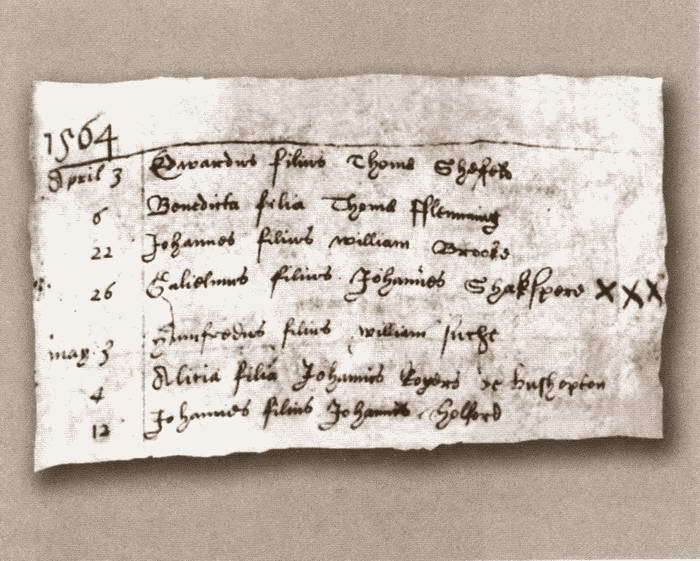 1564
April 3 Edwardus filius Thome Shefeld
6 Benedicta filia Thome Fflemming
22 Johannes filius William Brooke
26 Gulielmus filius Johannes Shakspere XXX
may 3 filius william
4 Alicia filia Johannis Rogers de
12 Johannes filius Johannis Holford